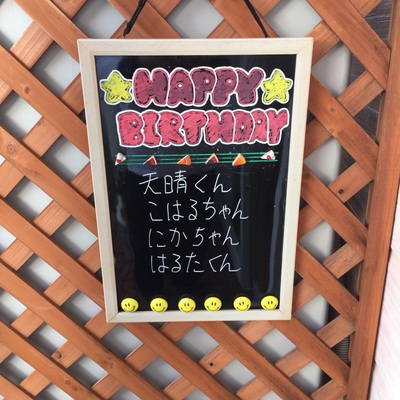 HAPPY
BIRTHDAY
天晴くん
こはるちゃん
にかちゃん
はるたくん